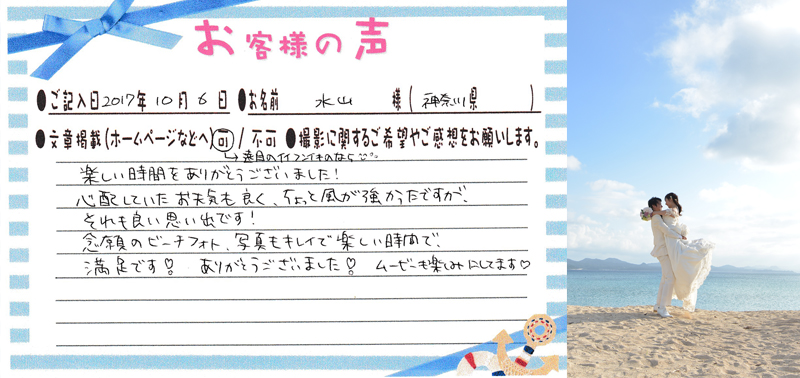 お客様の声
●ご記入日2017年 10月 6日 ●お名前 水山 様(神奈川県)
●文章掲載(ホームページなどへ)可/不可 ●撮影に関するご希望やご感想をお願いします。
↳遠目のイイカンジのなら
楽しい時間をありがとうございました!
心配していたお天気も良く、ちょっと風が強かったですが、
それも良い思い出です!
念願のビーチフォト、写真もキレイで楽しい時間で、
満足です♡ ありがとうございました♡ ムービーも楽しみにしてます♡